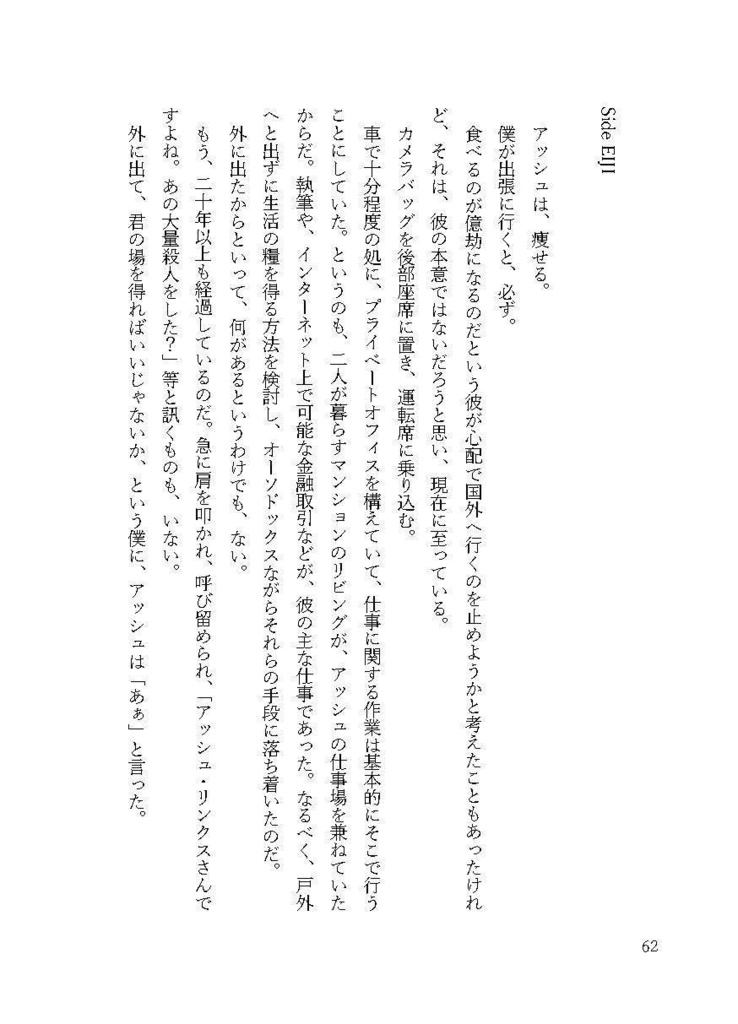 Side EIJI
アッシュは、痩せる。
僕が出張に行くと、必ず。
食べるのが億劫になるのだという彼が心配で国外へ行くのを止めようかと考えたこともあったけれ
ど、それは、彼の本意ではないだろうと思い、現在に至っている。
カメラバッグを後部座席に置き、運転席に乗り込む。
車で十分程度の処に、プライベートオフィスを構えていて、仕事に関する作業は基本的にそこで行う
ことにしていた。というのも、二人が暮らすマンションのリビングが、アッシュの仕事場を兼ねていた
からだ。執筆や、インターネット上で可能な金融取引などが、彼の主な仕事であった。なるべく、戸外
へと出ずに生活の糧を得る方法を検討し、オーソドックスながらそれらの手段に落ち着いたのだ。
外に出たからといって、何があるというわけでも、ない。
もう、二十年以上も経過しているのだ。急に肩を叩かれ、呼び留められ、「アッシュ・リンクスさんで
すよね。あの大量殺人をした？」等と訊くものも、いない。
外に出て、君の場を得ればいいじゃないか、という僕に、アッシュは「あぁ」と言った。
62